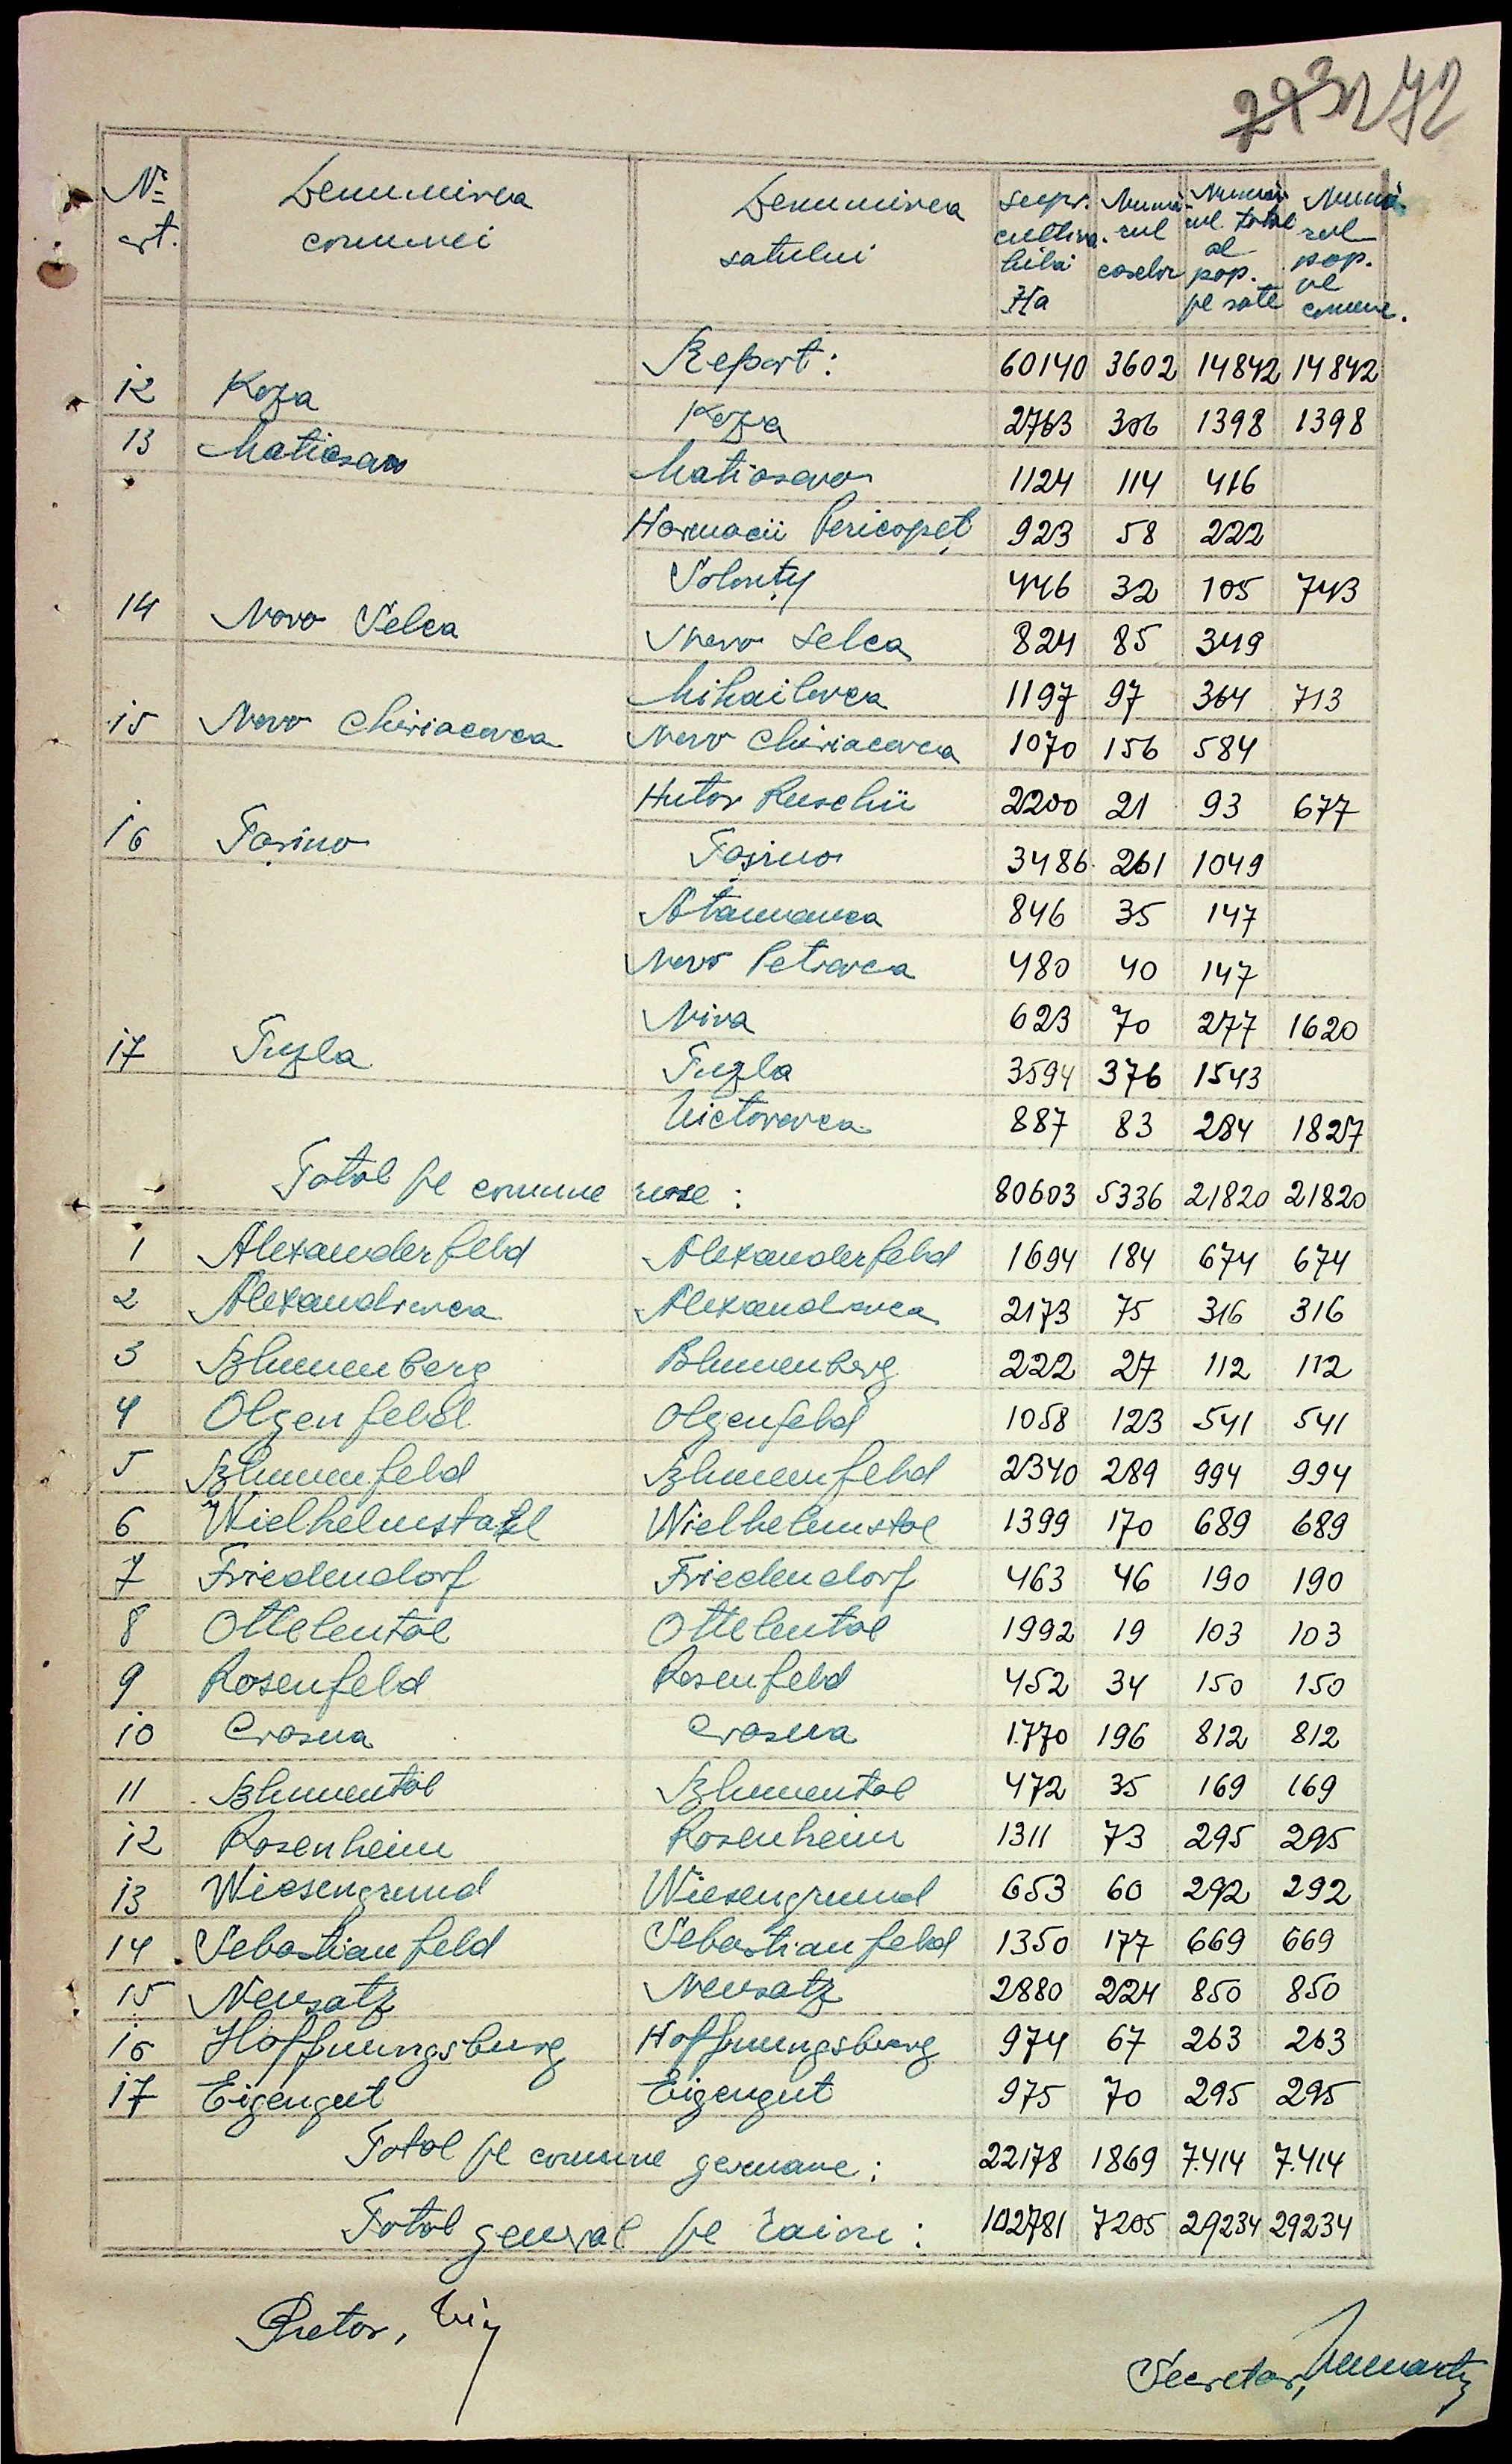 293 272
№ crt. Denumirea comunei Denumirea satului Supr. cultiva- bilă Ha Numă- rul caselor Număr- ul total al pop. pe sate Numă- rul pop. pe comune.
Report: 60140 3602 14842 14842
12 Koza Koza 2763 306 1398 1398
13 Matiasovo Matiasovo 1124 114 416
Harmacii Pericopeț 923 58 222
Solonțy 446 32 105 743
14 Novo Selca Novo Selca 824 85 349
Mihailovca 1197 97 364 713
15 Novo Chiriacovca Novo Chiriacovca 1070 156 584
Hutor Ruschii 2200 21 93 677
16 Tașino Tașino 3486 261 1049
Atamanca 846 35 147
Novo Petrovca 480 40 147
Niva 623 70 277 1620
17 Tuzla Tuzla 3594 376 1543
Victorovca 887 83 284 1827
Total pe comune ruse: 80603 5336 21820 21820
1 Alexanderfeld Alexanderfeld 1694 184 674 674
2 Alexandrovca Alexandrovca 2173 75 316 316
3 Blumenberg Blumenberg 222 27 112 112
4 Olgenfeld Olgenfeld 1058 123 541 541
5 Blumenfeld Blumenfeld 2340 289 994 994
6 Wielhelmstal Wielhelmstal 1399 170 689 689
7 Friedendorf Friedendorf 463 46 190 190
8 Ottelental Ottelental 1992 19 103 103
9 Rosenfeld Rosenfeld 452 34 150 150
10 Crasna Crasna 1.770 196 812 812
11 Blumental Blumental 472 35 169 169
12 Rosenheim Rosenheim 1311 73 295 295
13 Wiesengrund Wiesengrund 653 60 292 292
14 Sebastianfeld Sebastianfeld 1350 177 669 669
15 Neusatz Neusatz 2880 224 850 850
16 Hoffnungsburg Hoffnungsburg 974 67 263 263
17 Eigengut Eigengut 975 70 295 295
Total pe comune germane: 22178 1869 7.414 7.414
Total general pe raion: 102781 7205 29234 29234
Pretor,
Secretar,